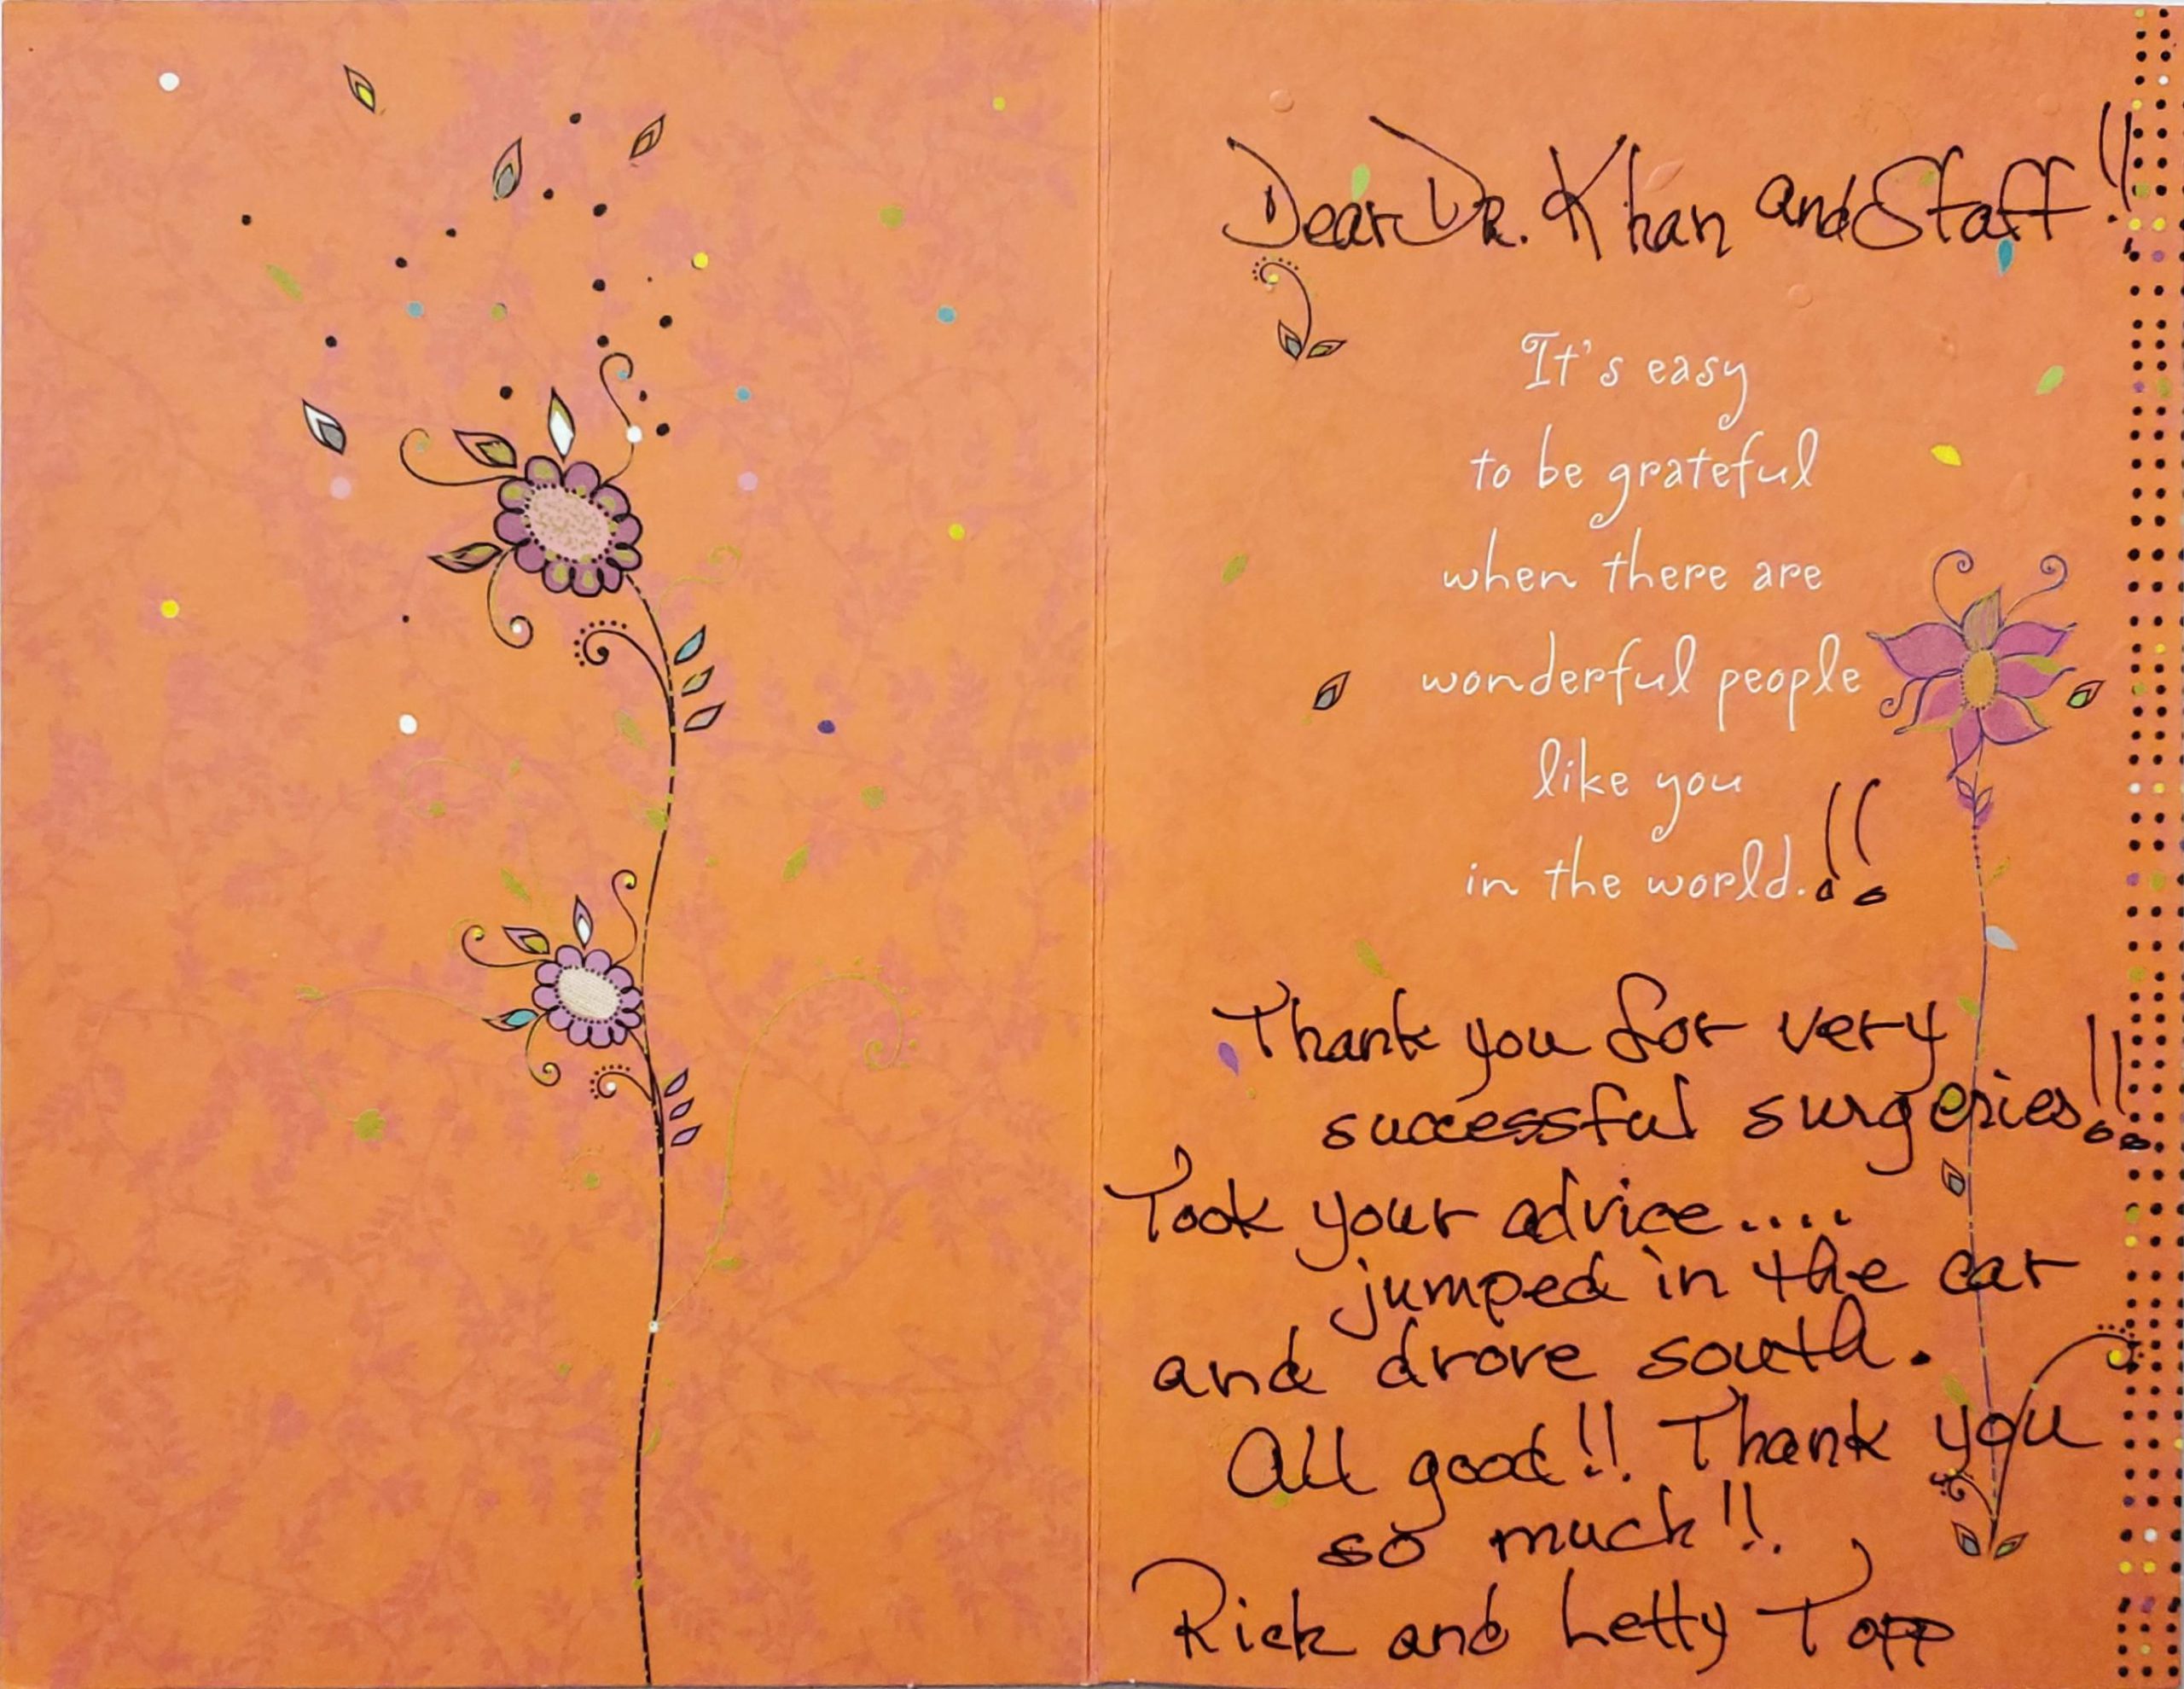 Dear Dr. Khan and Staff!!
It's easy
to be grateful
when there are
wonderful people
like you
in the world.!!
Thank you for very
successful surgeries!!
Took your advice....
jumped in the car
and drove south.
All good!! Thank you
so much!!
Rick and Letty Topp